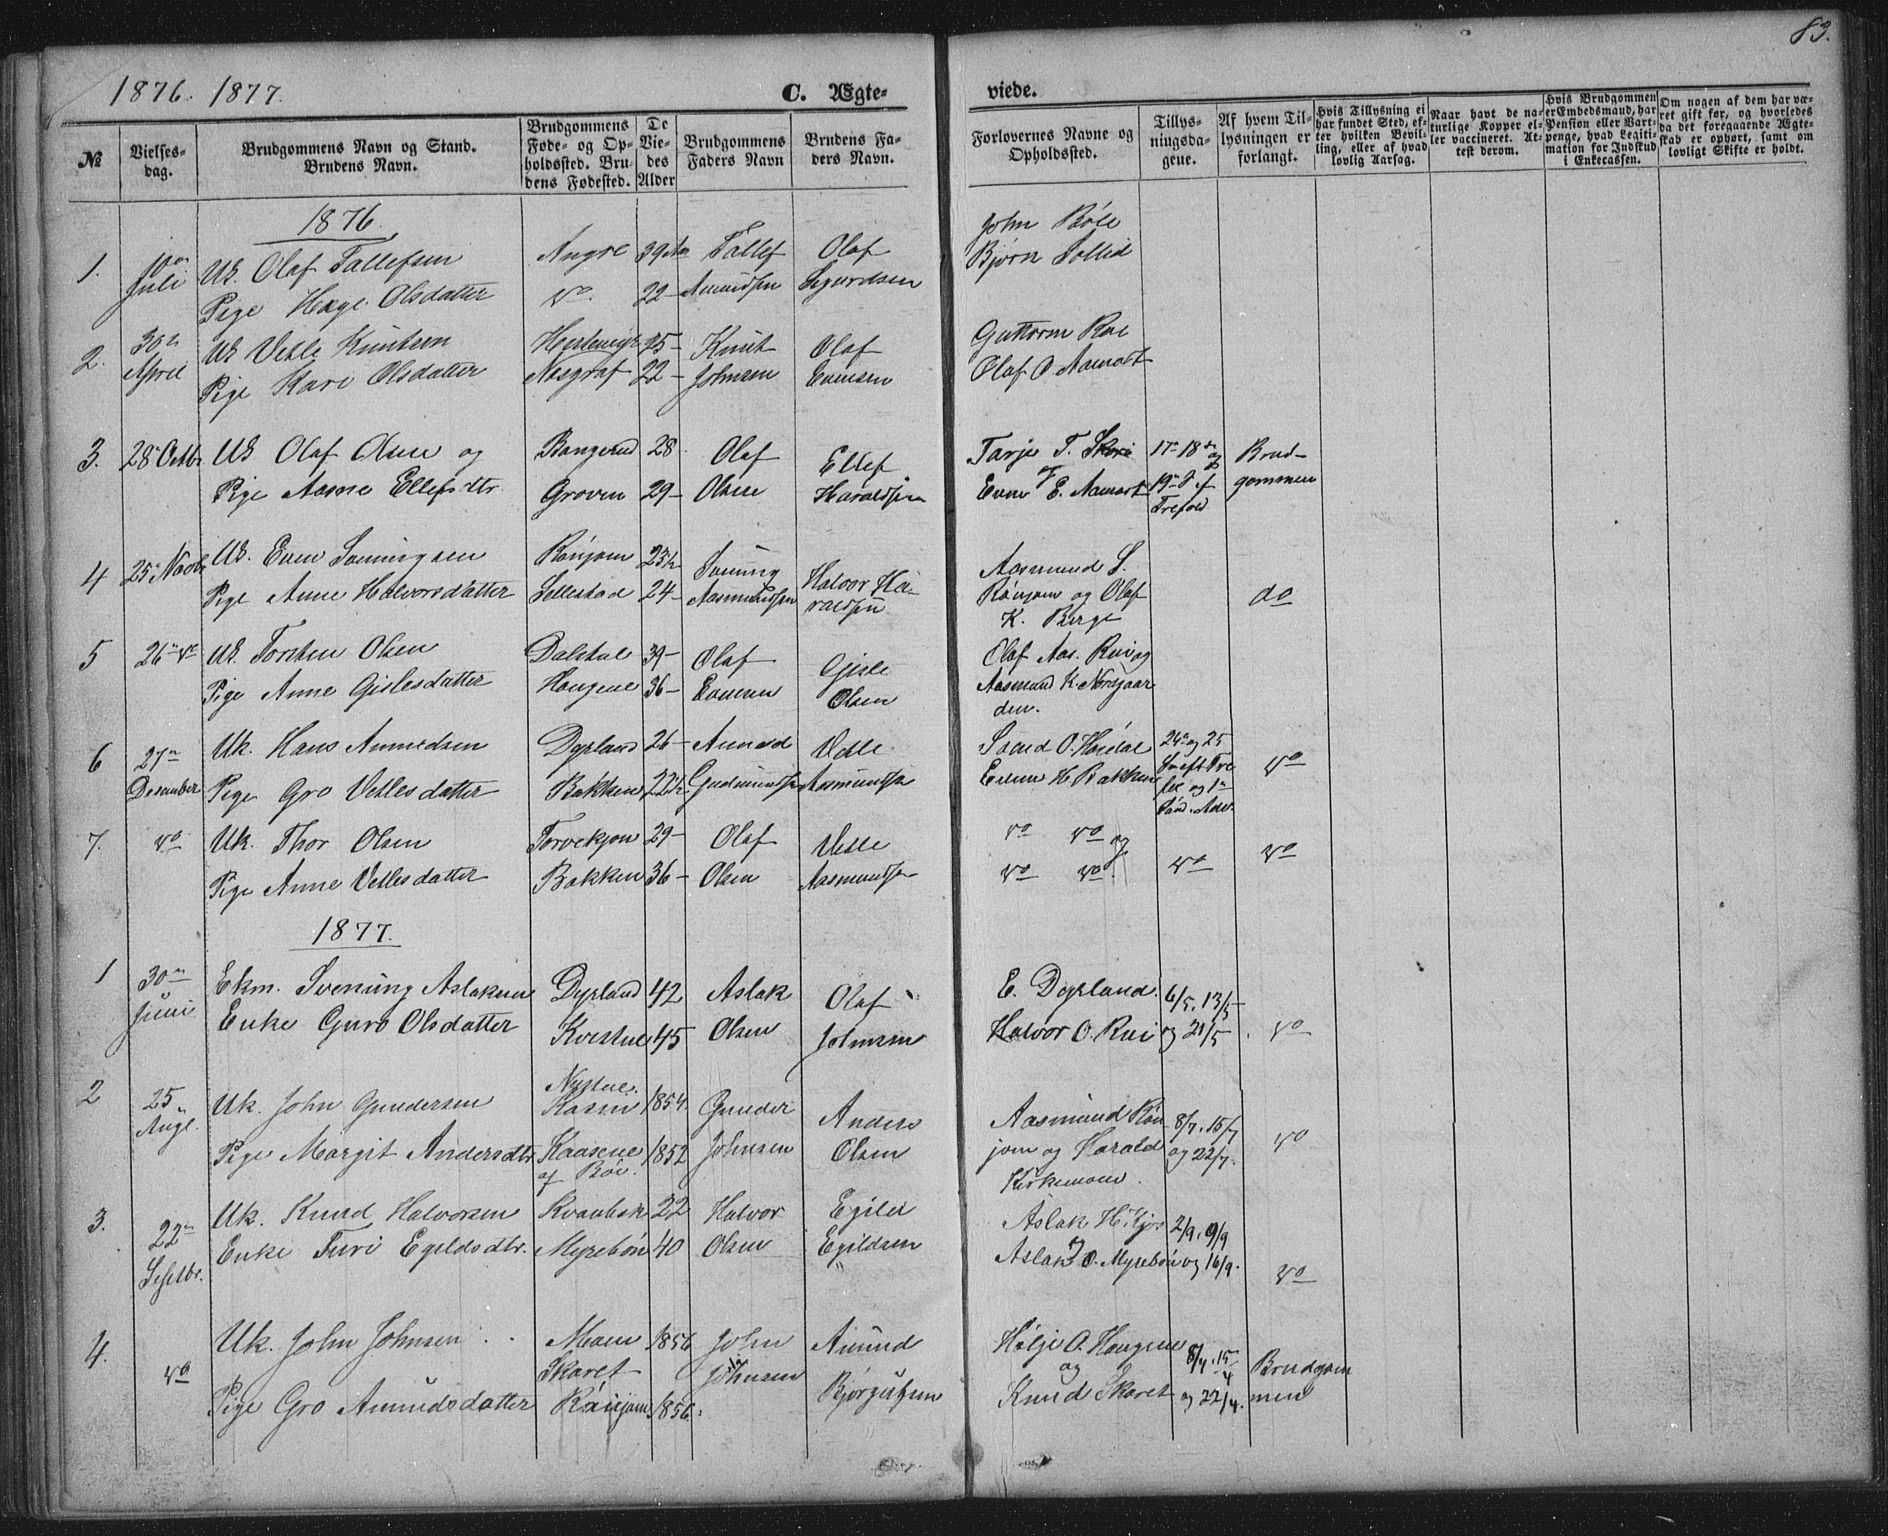 83.
1876. 1877.
C. Ægte-
viede.
№
Vielses-
dag.
Brudgommens Navn og Stand.
Brudens Navn.
Brudgommens
Føde- og Op-
holdssted. Bru-
dens Fødested.
De
Vie-
des
Alder
Brudgommens
Faders Navn
Brudens Fa-
ders Navn.
Forlovernes Navne og
Opholdssted.
Tillys-
ningsda-
gene.
Af hvem Til-
lysningen er
forlangt.
Hvis Tillysning ei
har fundet Sted, ef-
ter hvilken Bevil-
ling, eller af hvad
lovlig Aarsag.
Naar havt de na-
turlige Kopper el-
ler vaccineret. At-
test derom.
Hvis Brudgommen
er Embedsmand, har
Pension eller Vart-
penge, hvad Legiti-
mation for Indskud
i Enkecassen.
Om nogen af dem har væ-
ret gift før, og hvorledes
da det foregaaende Ægte-
skab er ophørt, samt om
lovligt Skifte er holdt.
1876.
1.
10de
Juli
Uk. Olaf Tallefsen
Pige Hæge Olsdatter
Angre
do.
39 Aar
22 -
Tallef
Amundsen
Olaf
Sigurdsen
John Bøle
Bjørn Sollid
2.
30te
April
Uk Vetle Knutsen
Pige Kari Olsdatter
Aasgraf
25 -
22 -
Knut
Johnsen
Olaf
Evensen
Guttorm Roe
Olaf O. Aamort
3.
28de Octbr
Uk Olaf Olsen og
Pige Aasne Ellefsdtr.
Bangerud
Groven
28
29 -
Olaf
Olsen
Ellef
Haraldsen
Tarje T. Skori
Even E. Aamort
17de 18de og
19de S. ef
Trefold
Brud-
gommen
4
25de Novbr
Uk. Even Svenungsen
Pige Anne Halvorsdatter
Rønjom
Sellestad
23½
24 -
Svenung
Aasmundsen
Halvor Ha-
raldsen
Aasmund S.
Rønjom og Olaf
K. Berge
do
5
26de do
Uk. Torsten Olsen
Pige Anne Gislesdatter
Dalstul
Haugene
39 -
36 -
Olaf
Evensen
Gisle
Olsen
Olaf Aas. Rui og
Aasmund K. Nordgaar
den.
6
27de
December
Uk. Hans Amundsen
Pige Gro Vetlesdatter
Dyrland
Bakken
26 -
22½
Amund
Gudmundsen
Vetle
Aasmundsen
Svend O. Hordal
Even H. Bakken
24de og 25
S. eft. Tre
fol. og 1ste
Sønd. Adv.
do
7.
do
Uk. Thor Olsen
Pige Anne Vetlesdatter
Torvekjon
Bakken
29 -
36 -
Olaf
Olsen
Vetle
Aasmundsen
do do og
do do
do
do
1877.
1
30te
Juni
Ekm. Svenung Aslaksen
Enke Guro Olsdatter
Dyrland
Kvestul
42
45
Aslak
Olsen
Olaf
Johnsen
E. Dyrland.
Halvor O. Rui
6/5, 13/5
og 21/5
do
2
25
Aug.
Uk. John Gundersen
Pige Margit Andersdtr.
Nystue
Kasin
Kaasene
af Bøe.
1854.
1852
Gunder
Johnsen
Anders
Olsen
Aasmund Røn
jom og Harald
Kirkemoen.
8/7, 15/7
og 22/7.
do
3.
22de
Septbr.
Uk. Knud Halvorsen
Enke Turi Egildsdtr.
Kvanbek
Myrebøn
22
40
Halvor
Olsen
Egild
Egildsen
Aslak H. Kjos
og
Aslak O. Myrebøn
2/9, 9/9
og 16/9.
do
4.
do
Uk. John Johnsen
Pige Gro Amundsdatter
Moen
Skaret
Rønjom
1856
1856.
John
Johnsen
Amund
Bjørgufsen
Hølje O. Haugene
og
Knud Skaret
8/4, 15/4
og 22/4.
Brudgom
men